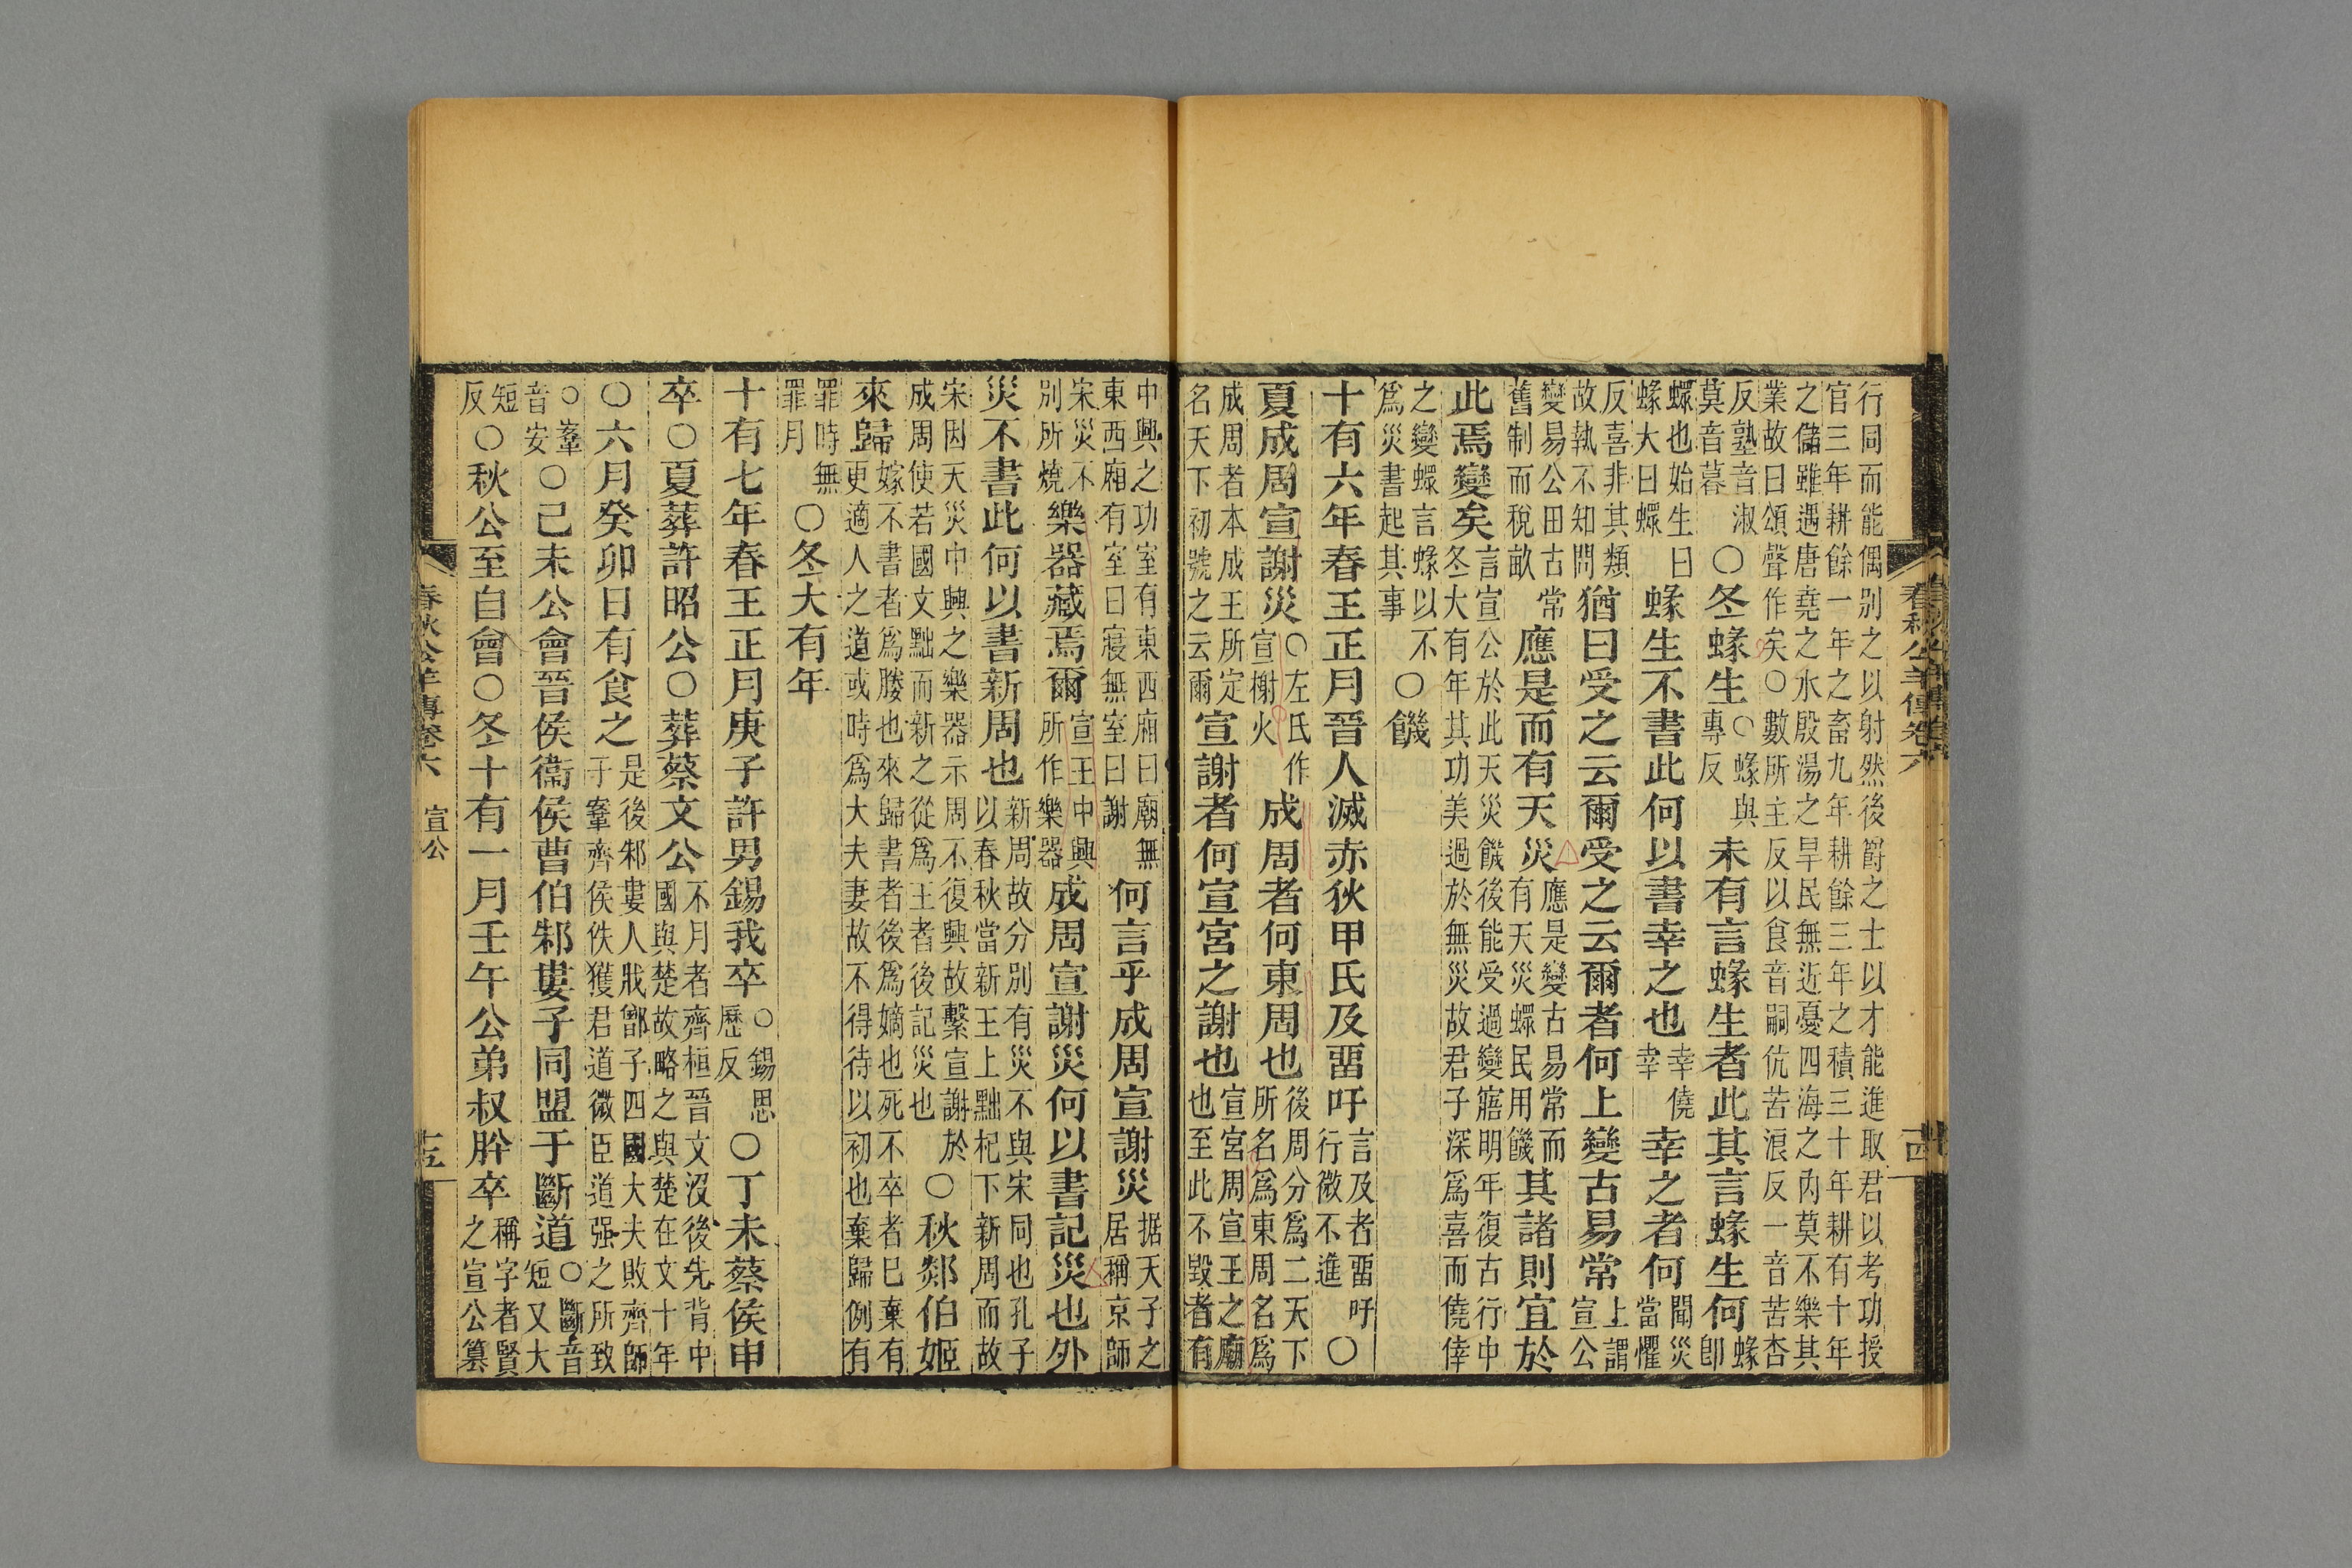 行同而能偶別之以射然後爵之士以才能進取君以考功授
官三年耕餘一年之畜九年耕餘三年之積三十年耕有十年
之儲雖遇唐堯之水殷湯之旱民無近憂四海之內莫不樂其
業故曰頌聲作矣○數所主反以食音嗣伉苦浪反一音苦杏
反塾音淑莫音暮○冬蝝生○蝝與專反未有言蝝生者此其言蝝生何蝝卽
𧑄也始生曰蝝大曰𧑄蝝生不書此何以書幸之也幸僥幸幸之者何聞災當懼
反喜非其類故執不知問猶曰受之云爾受之云爾者何上變古易常上謂宣公
變易公田古常舊制而稅畝應是而有天災應是變古易常而有天災𧑄民用饑其諸則宜於
此焉變矣言宣公於此天災饑後能受過變寤明年復古行中冬大有年其功美過於無災故君子深爲喜而僥倖
之變𧑄言蝝以不爲災書起其事○饑
十有六年春王正月晉人滅赤狄甲氏及畱吁言及者畱吁行微不進○
夏成周宣謝災○左氏作宣榭火成周者何東周也後周分爲二天下所名爲東周名爲
成周者本成王所定名天下初號之云爾宣謝者何宣宮之謝也宣宮周宣王之廟也至此不毀者有
春秋公羊傳卷六
十四
中興之功室有東西廂曰廟無東西廂有室曰寢無室曰謝何言乎成周宣謝災据天子之居稱京師
宋災不別所燒樂器藏焉爾宣王中興所作樂器成周宣謝災何以書記災也外
災不書此何以書新周也新周故分別有災不與宋同也孔子以春秋當新王上黜杞下新周而故
宋因天災中興之樂器示周不復興故繫宣謝於成周使若國文黜而新之從爲王者後記災也○秋郯伯姬
來歸嫁不書者爲媵也來歸書者後爲嫡也死不卒者已棄有更適人之道或時爲大夫妻故不得待以初也棄歸例有
罪時無罪月○冬大有年
十有七年春王正月庚子許男錫我卒○錫思歷反○丁未蔡侯申
卒○夏葬許昭公○葬蔡文公不月者齊桓晉文沒後先背中國與楚故略之與楚在文十年
○六月癸卯日有食之是後邾婁人戕鄫子四國大夫敗齊師于鞌齊侯佚獲君道微臣道强之所致
○鞌音安○己未公會晉侯衞侯曹伯邾婁子同盟于斷道○斷音短又大
短反○秋公至自會○冬十有一月壬午公弟叔肸卒稱字者賢之宣公篡
春秋公羊傳卷六
宣公
十五